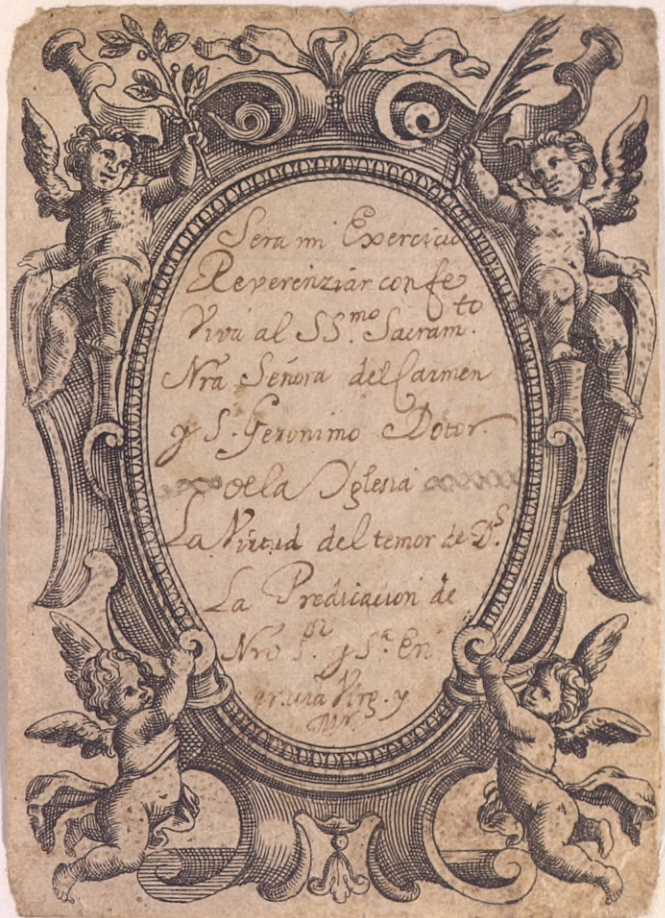 Sera mi Exercicio
Reverenziar con fe
Viva al SS.mo Sacram.to
Nra Señora del Carmen
y S. Geronimo Dotor
de la Yglesia
La Virtud del temor de D.s
La Predicacion de
Nro S.or y S.ta En
gracia Virg. y
Mr.